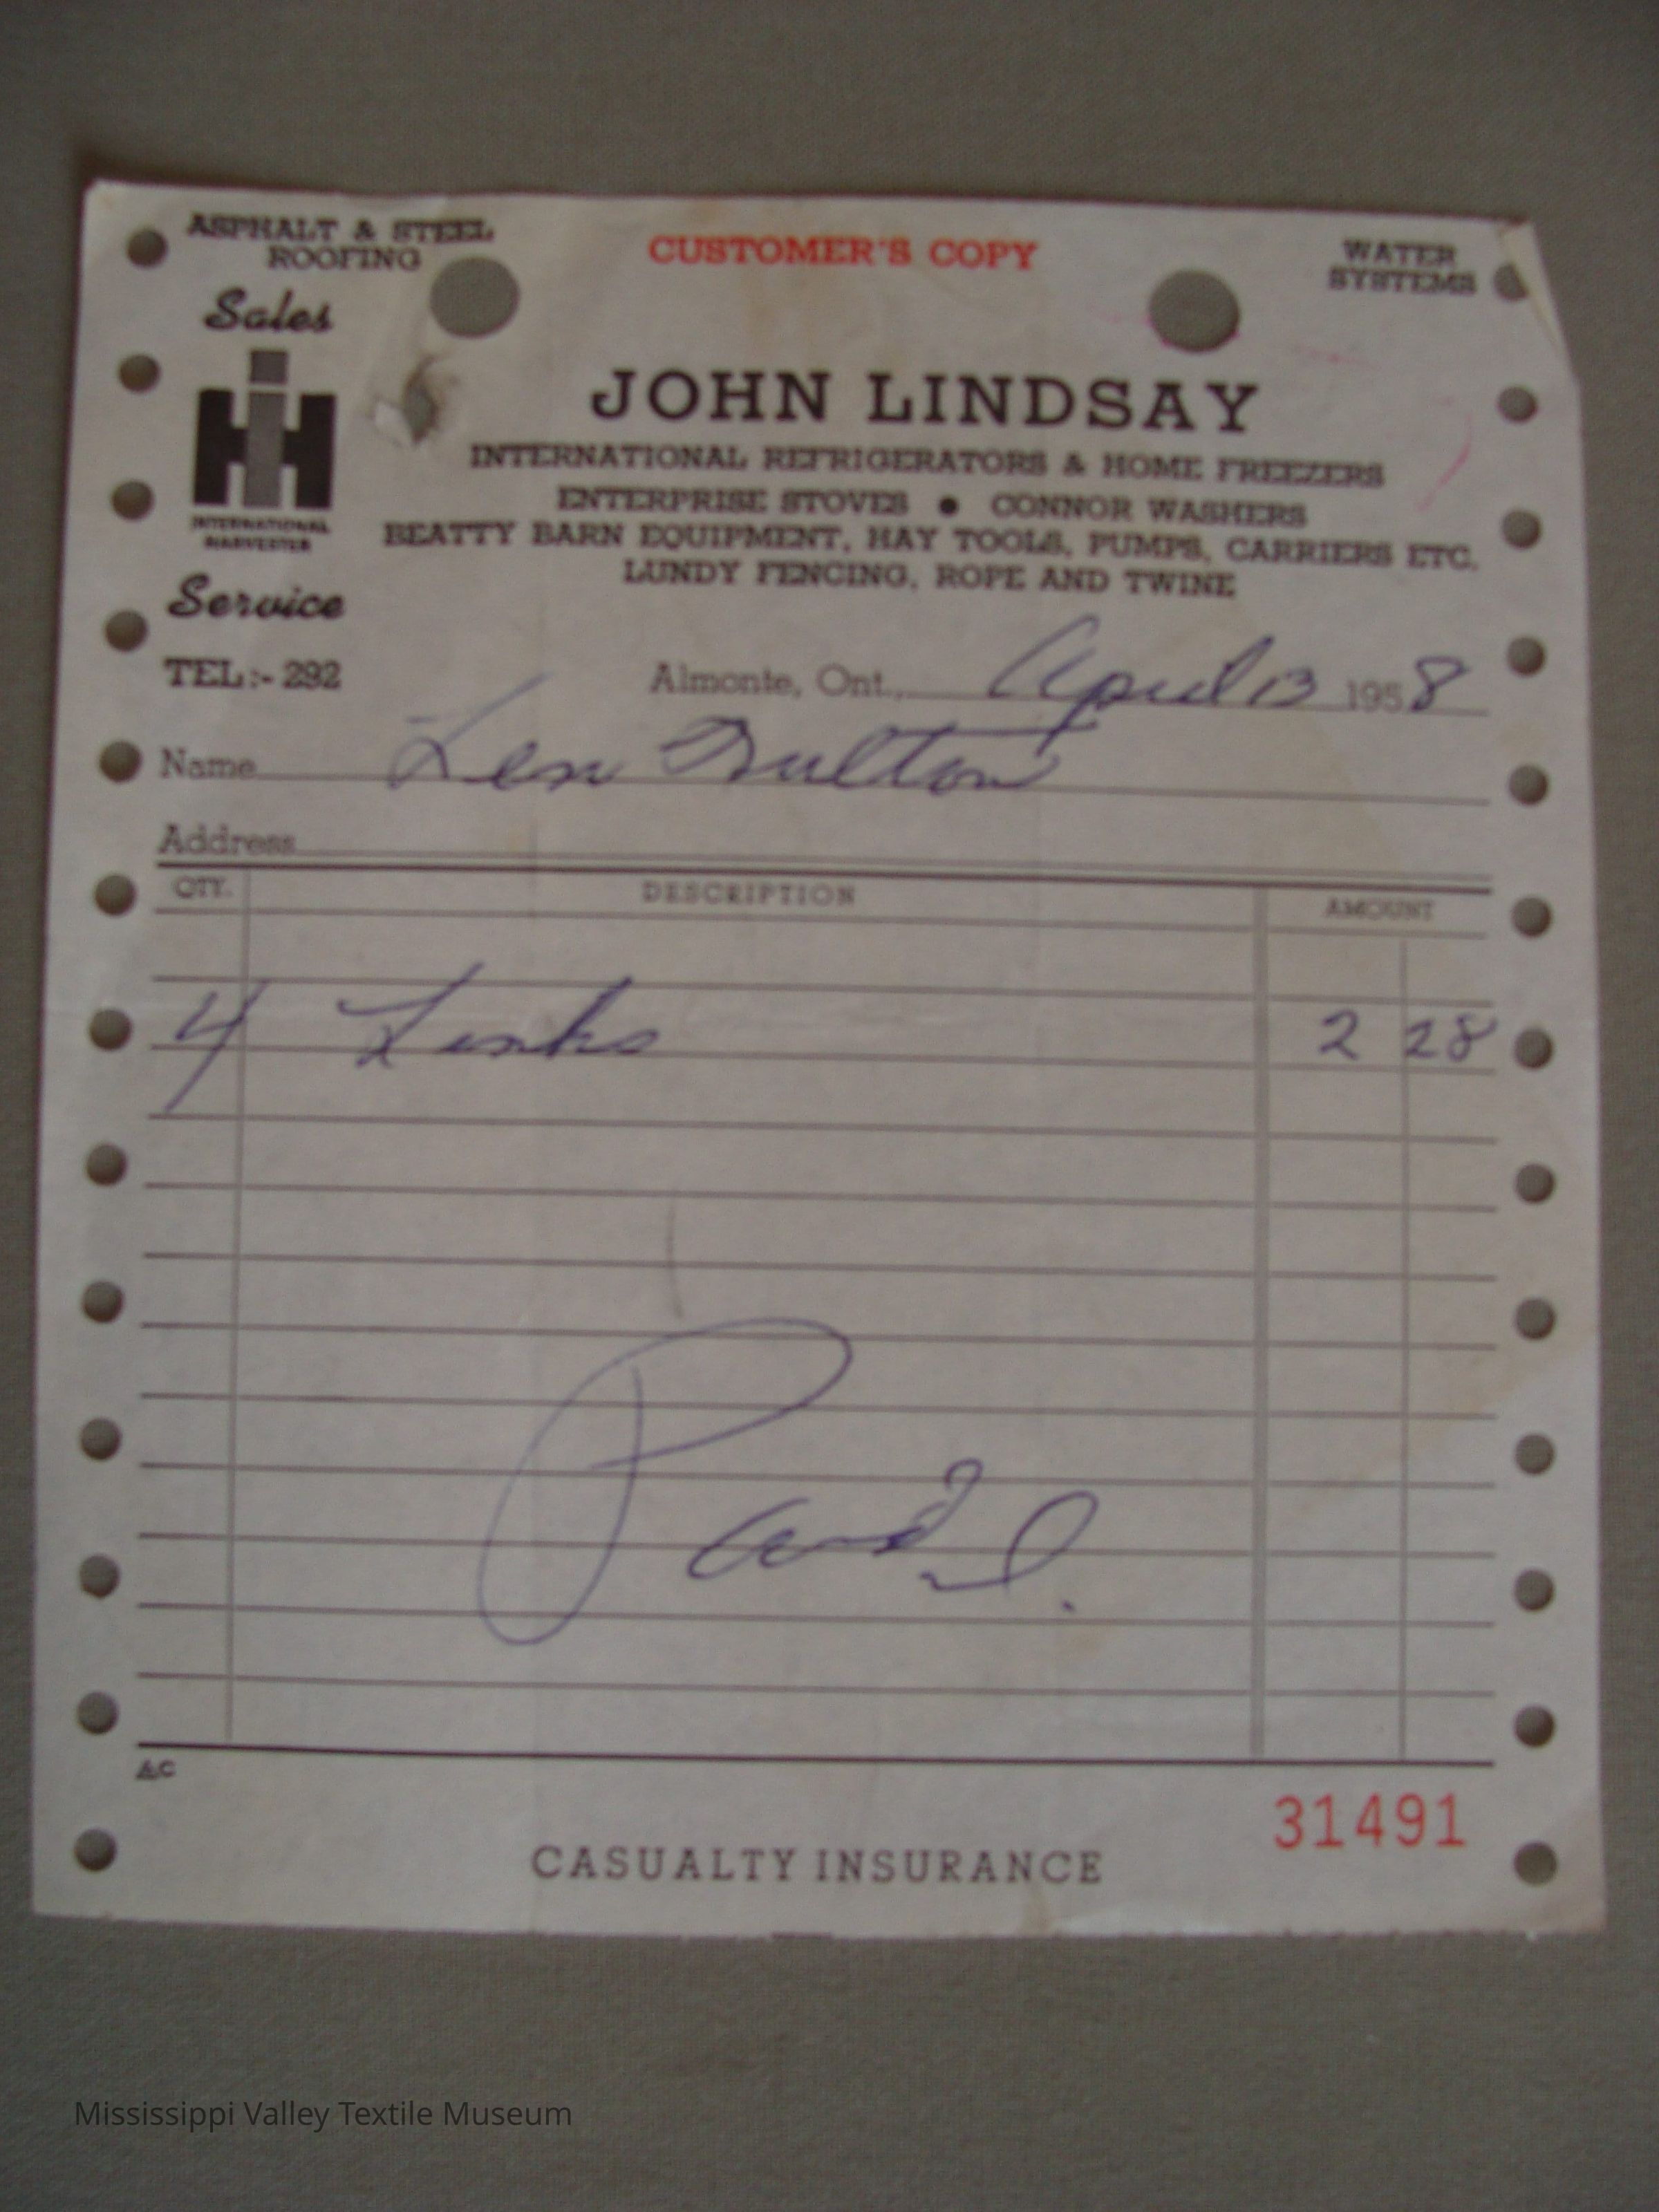 ASPHALT & STEEL
ROOFING
CUSTOMER'S COPY
WATER
SYSTEMS
Sales
IH
INTERNATIONAL
HARVESTER
Service
TEL:- 292
JOHN LINDSAY
INTERNATIONAL REFRIGERATORS & HOME FREEZERS
ENTERPRISE STOVES ● CONNOR WASHERS
BEATTY BARN EQUIPMENT, HAY TOOLS, PUMPS, CARRIERS ETC.
LUNDY FENCING, ROPE AND TWINE
Almonte, Ont., April 13 1958
Name Len Fulton
Address
QTY. DESCRIPTION AMOUNT
4 Links 2 28
Paid
AC
31491
CASUALTY INSURANCE
Mississippi Valley Textile Museum